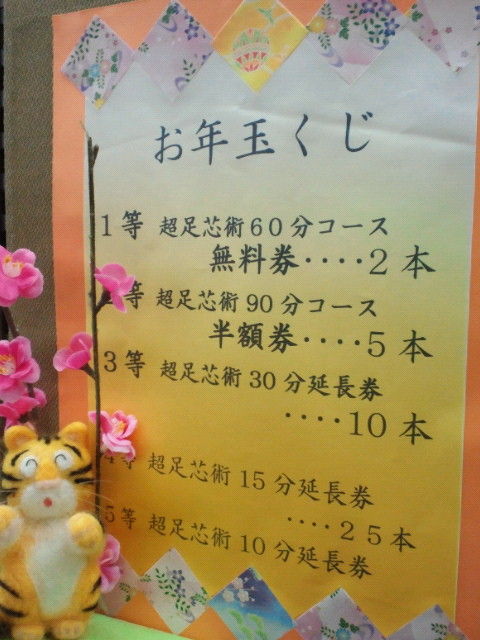 お年玉くじ
1等 超足芯術60分コース
無料券････2本
等 超足芯術90分コース
半額券････5本
3等 超足芯術30分延長券
････10本
4等 超足芯術15分延長券
････25本
5等 超足芯術10分延長券